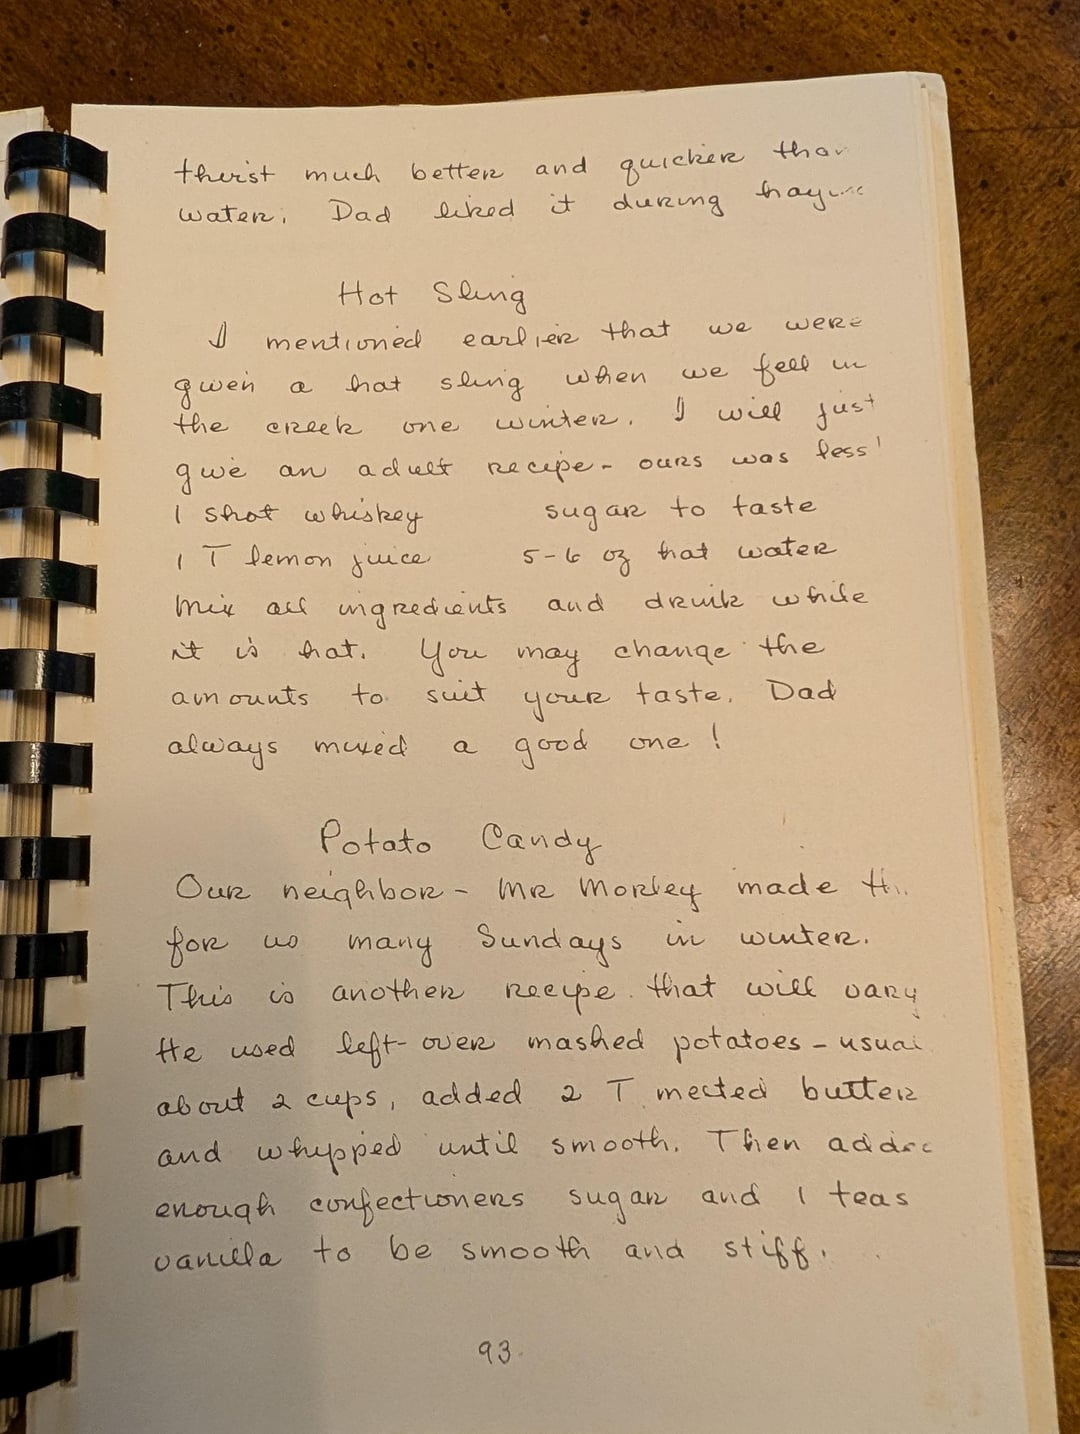 thirst much better and quicker than
water. Dad liked it during
Hot Sling
I mentioned earlier that we were
given a hot sling when we fell in
the creek one winter. I will just
give an adult recipe - ours was less!
1 shot whiskey sugar to taste
1 T lemon juice 5-6 oz hot water
Mix all ingredients and drink while
it is hot. You may change the
amounts to suit your taste. Dad
always mixed a good one!
Potato Candy
Our neighbor - Mr Morley made
for us many Sundays in winter.
This is another recipe that will vary
He used left-over mashed potatoes - usual
about 2 cups, added 2 T melted butter
and whipped until smooth. Then added
enough confectioners sugar and 1 teas
vanilla to be smooth and stiff.
93